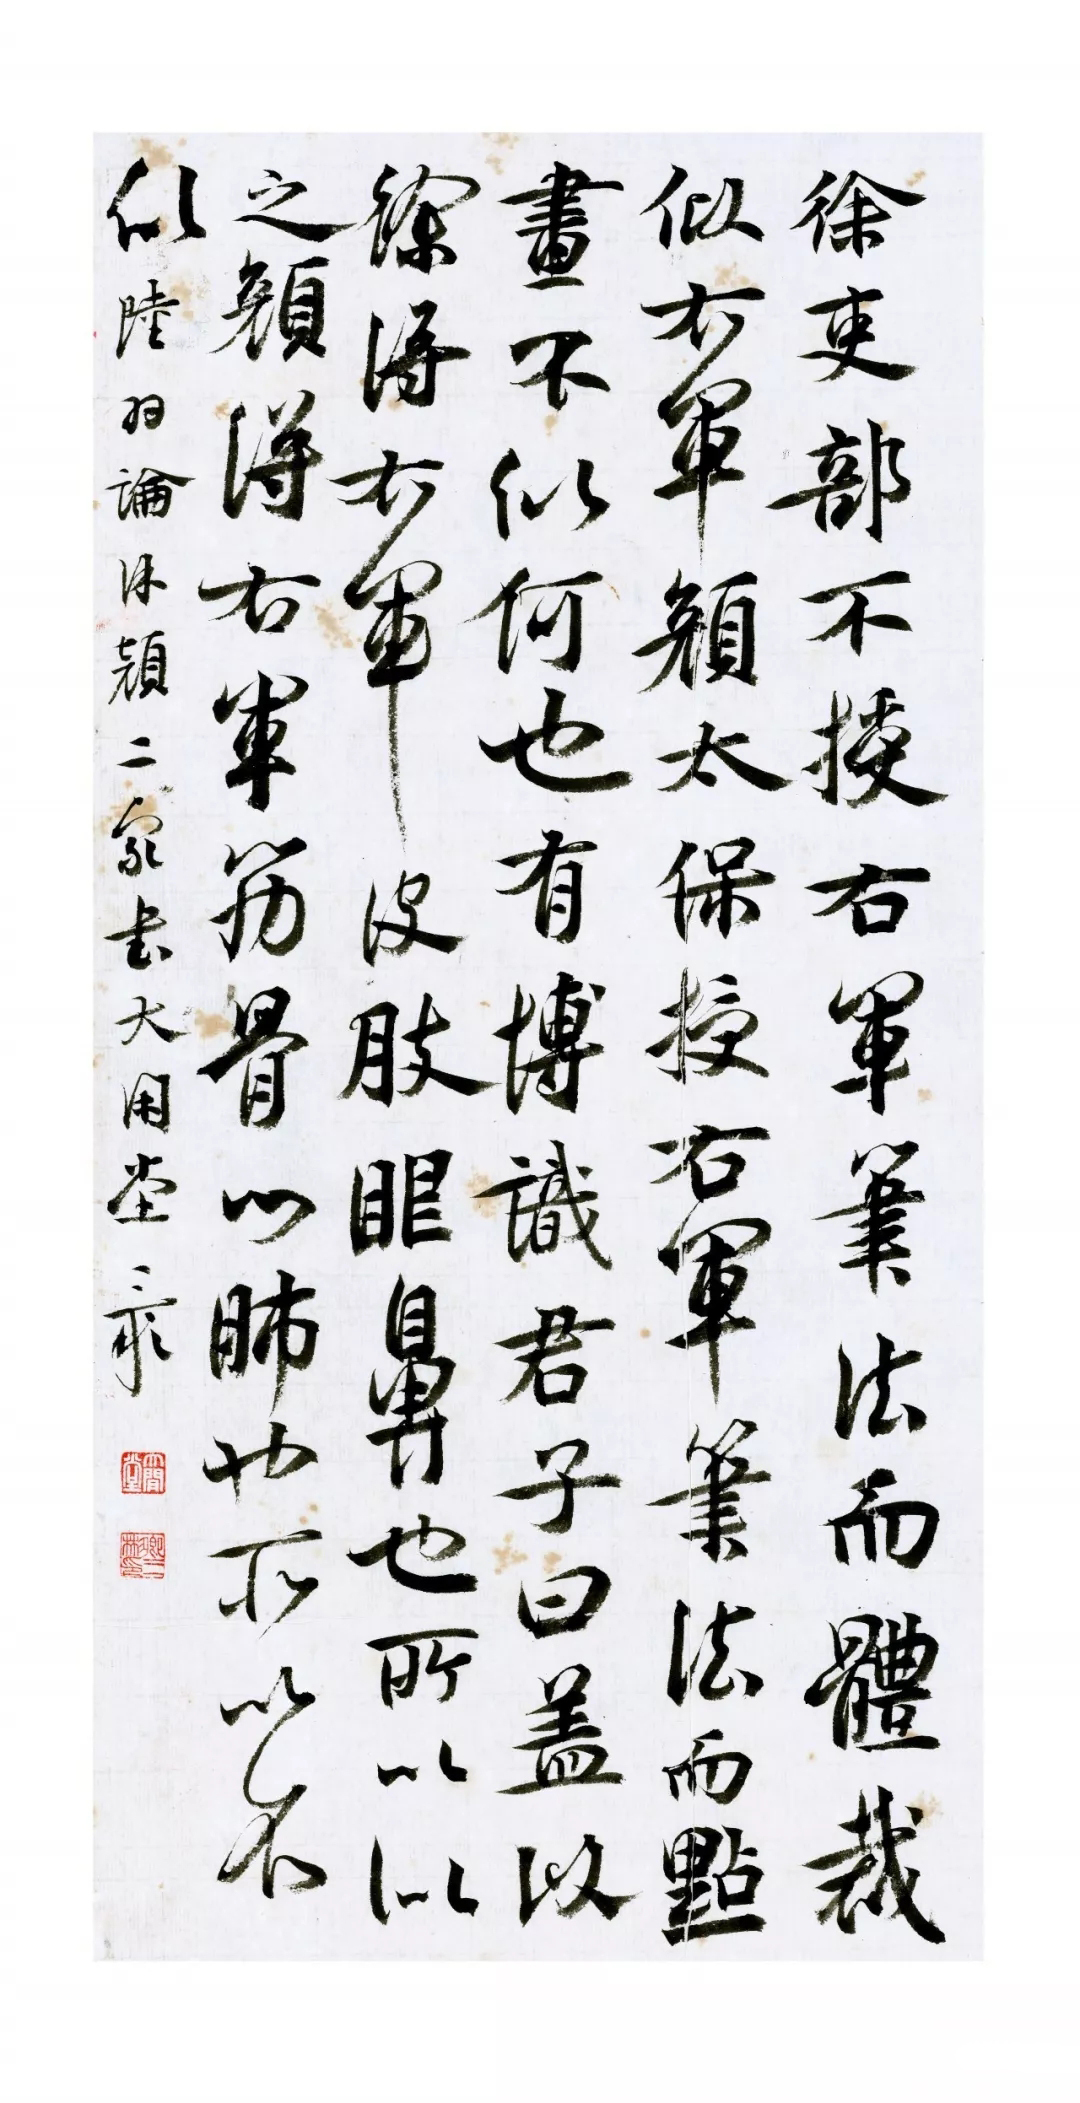 徐吏部不授右軍筆法而體裁
似右軍顏太保授右軍筆法而點
畫不似何也有博識君子曰盖以
徐得右軍皮膚眼鼻也所以似
之顏得右軍筋骨心肺也所以不
似陸羽論徐顏二家書大用堂